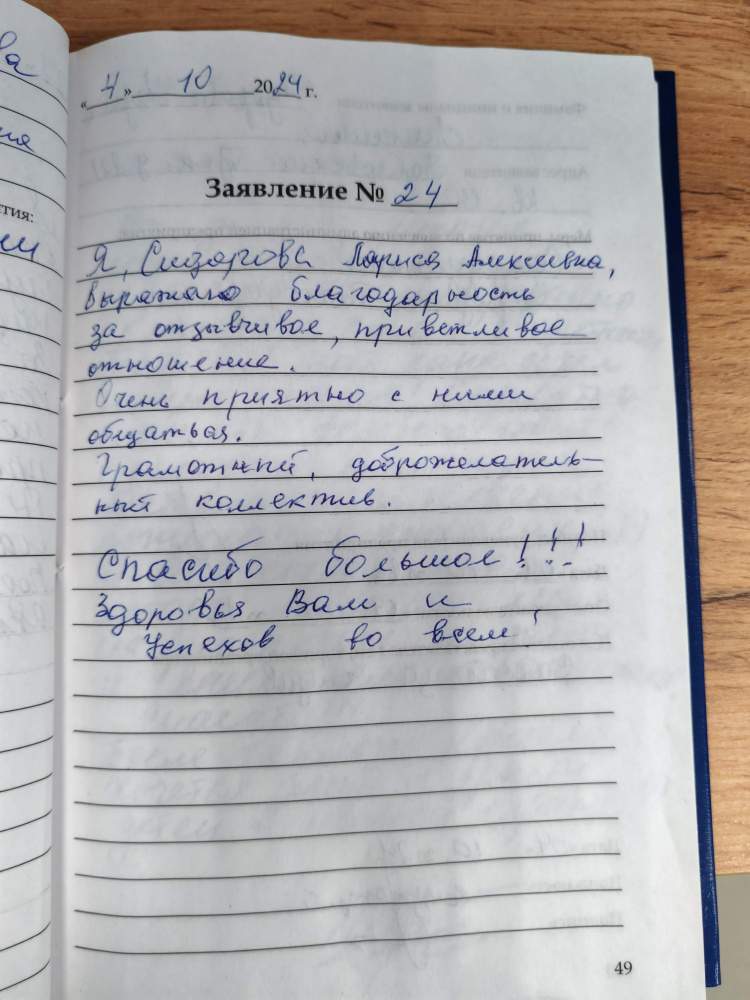 ва
тия:
« 4 » 10 2024 г.
Заявление № 24
Я, Сидорова Лариса Алексеевна,
выражаю благодарность
за отзывчивое, приветливое
отношение.
Очень приятно с ними
общаться.
Грамотный, доброжелатель-
ный коллектив.
Спасибо большое!!!
Здоровья Вам и
Успехов во всем!
49